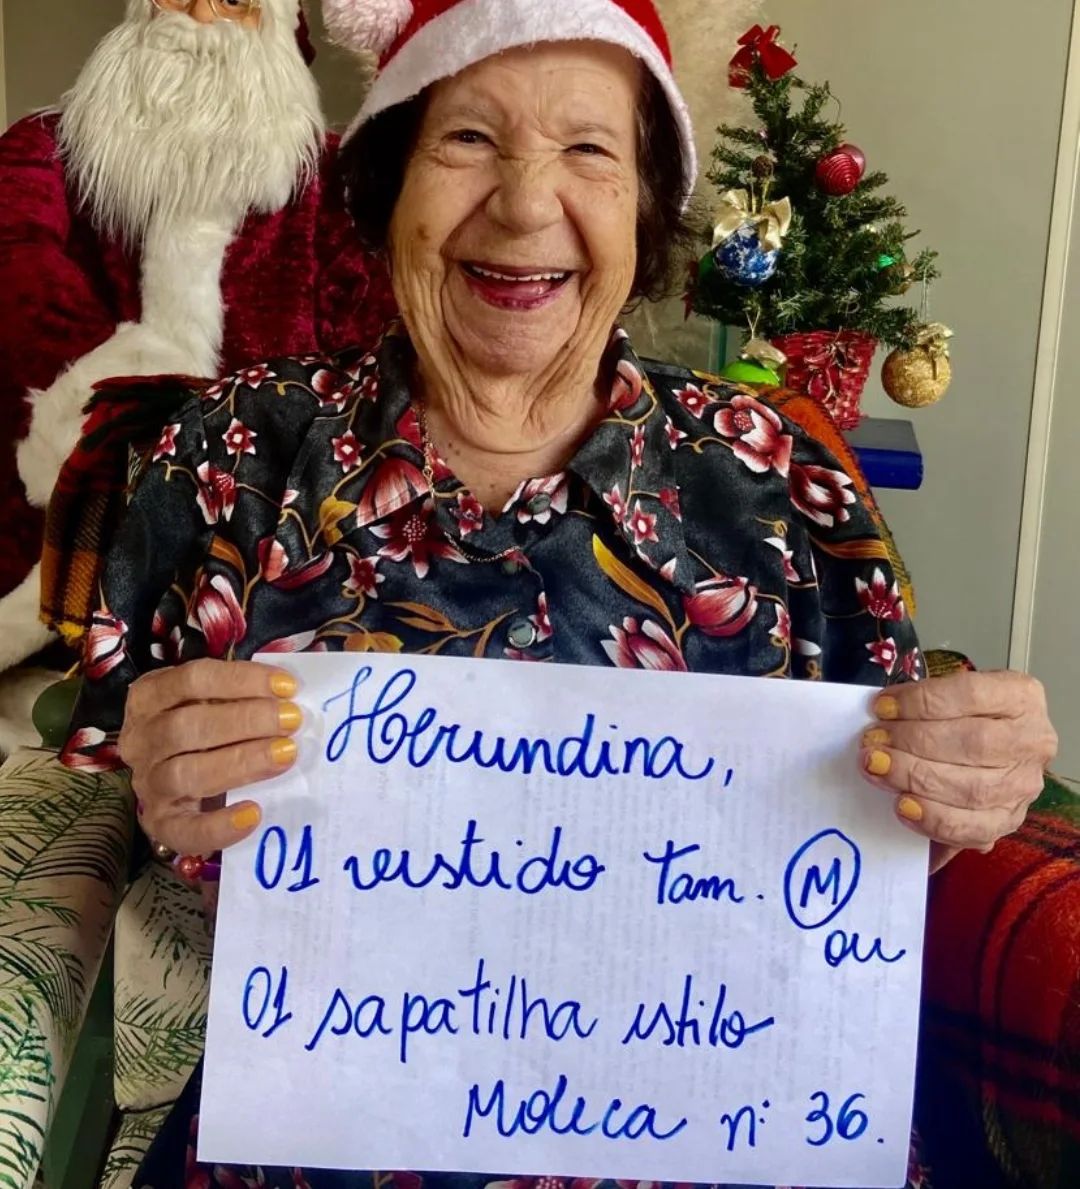 Herundina,
01 vestido Tam. M
ou
01 sapatilha estilo
Moleca nº 36.